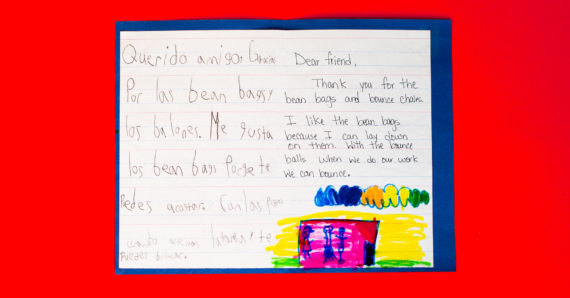 Querido amigo, Gracias
Por las bean bags y
los balones. Me gusta
los bean bags Porqe te
Pedes acostar. Con los
te
Puedes
Dear friend,
Thank you for the
bean bags and bounce chairs.
I like the bean bags
because I can lay down
on them. With the bounce
balls when we do our work
we can bounce.